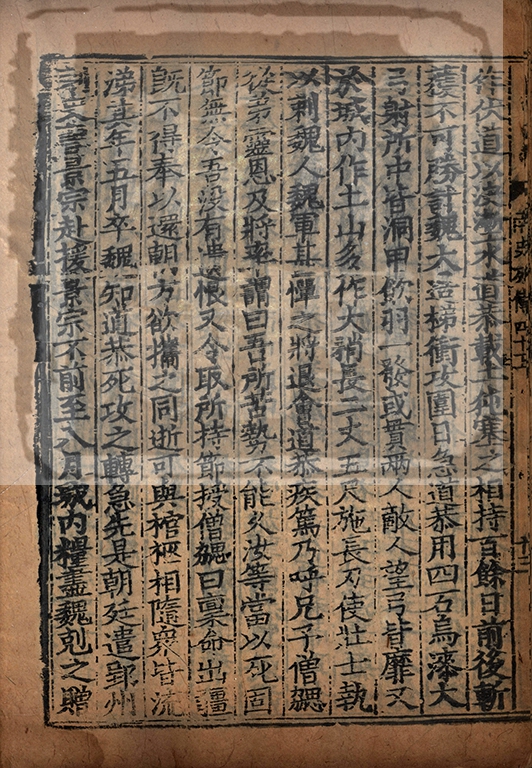 作伏道以決塹水道恭載土㹠塞之相持百餘日前後斬
獲不可勝計魏大造梯衝攻圍日急道恭用四石烏漆大
弓射所中皆洞甲飲羽一發或貫兩人敵人望弓皆靡又
於城内作土山多作大矟長二丈五尺施長刃使壯士執
以刺魏人魏軍甚憚之將退會道恭疾篤乃呼兄子僧勰
從弟靈恩及將率謂曰吾所苦勢不能久汝等當以死固
節無令吾沒有遺恨又令取所持節授僧勰曰稟命出疆
既不得奉以還朝方欲攜之同逝可與棺柩相隨衆皆流
涕其年五月卒魏知道恭死攻之轉急先是朝廷遣郢州
刺史曹景宗赴援景宗不前至八月城内糧盡魏剋之贈